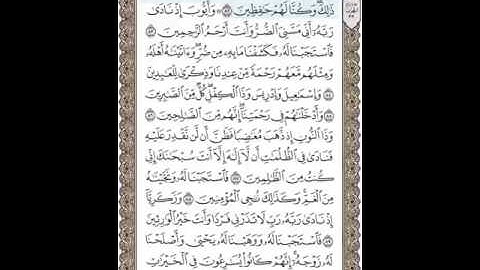 ذَٰلِكَ وَكُنَّا لَهُمْ حَٰفِظِينَ ٨٢ وَأَيُّوبَ إِذْ نَادَىٰ
رَبَّهُۥٓ أَنِّي مَسَّنِيَ ٱلضُّرُّ وَأَنتَ أَرْحَمُ ٱلرَّٰحِمِينَ ٨٣
فَٱسْتَجَبْنَا لَهُۥ فَكَشَفْنَا مَا بِهِۦ مِن ضُرٍّ وَءَاتَيْنَٰهُ أَهْلَهُۥ
وَمِثْلَهُم مَّعَهُمْ رَحْمَةً مِّنْ عِندِنَا وَذِكْرَىٰ لِلْعَٰبِدِينَ
٨٤ وَإِسْمَٰعِيلَ وَإِدْرِيسَ وَذَا ٱلْكِفْلِ كُلٌّ مِّنَ ٱلصَّٰبِرِينَ
٨٥ وَأَدْخَلْنَٰهُمْ فِي رَحْمَتِنَآ إِنَّهُم مِّنَ ٱلصَّٰلِحِينَ ٨٦
وَذَا ٱلنُّونِ إِذ ذَّهَبَ مُغَٰضِبًا فَظَنَّ أَن لَّن نَّقْدِرَ عَلَيْهِ
فَنَادَىٰ فِي ٱلظُّلُمَٰتِ أَن لَّآ إِلَٰهَ إِلَّآ أَنتَ سُبْحَٰنَكَ إِنِّي
كُنتُ مِنَ ٱلظَّٰلِمِينَ ٨٧ فَٱسْتَجَبْنَا لَهُۥ وَنَجَّيْنَٰهُ
مِنَ ٱلْغَمِّ وَكَذَٰلِكَ نُـۨجِي ٱلْمُؤْمِنِينَ ٨٨ وَزَكَرِيَّآ
إِذْ نَادَىٰ رَبَّهُۥ رَبِّ لَا تَذَرْنِي فَرْدًا وَأَنتَ خَيْرُ ٱلْوَٰرِثِينَ
٨٩ فَٱسْتَجَبْنَا لَهُۥ وَوَهَبْنَا لَهُۥ يَحْيَىٰ وَأَصْلَحْنَا
لَهُۥ زَوْجَهُۥٓ إِنَّهُمْ كَانُوا۟ يُسَٰرِعُونَ فِي ٱلْخَيْرَٰتِ